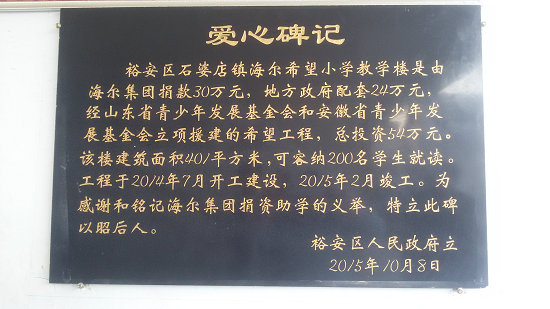 爱心碑记
裕安区石婆店镇海尔希望小学教学楼是由
海尔集团捐款30万元，地方政府配套24万元，
经山东省青少年发展基金会和安徽省青少年发
展基金会立项援建的希望工程，总投资54万元。
该楼建筑面积401平方米，可容纳200名学生就读。
工程于2014年7月开工建设，2015年2月竣工。为
感谢和铭记海尔集团捐资助学的义举，特立此碑
以昭后人。
裕安区人民政府立
2015年10月8日